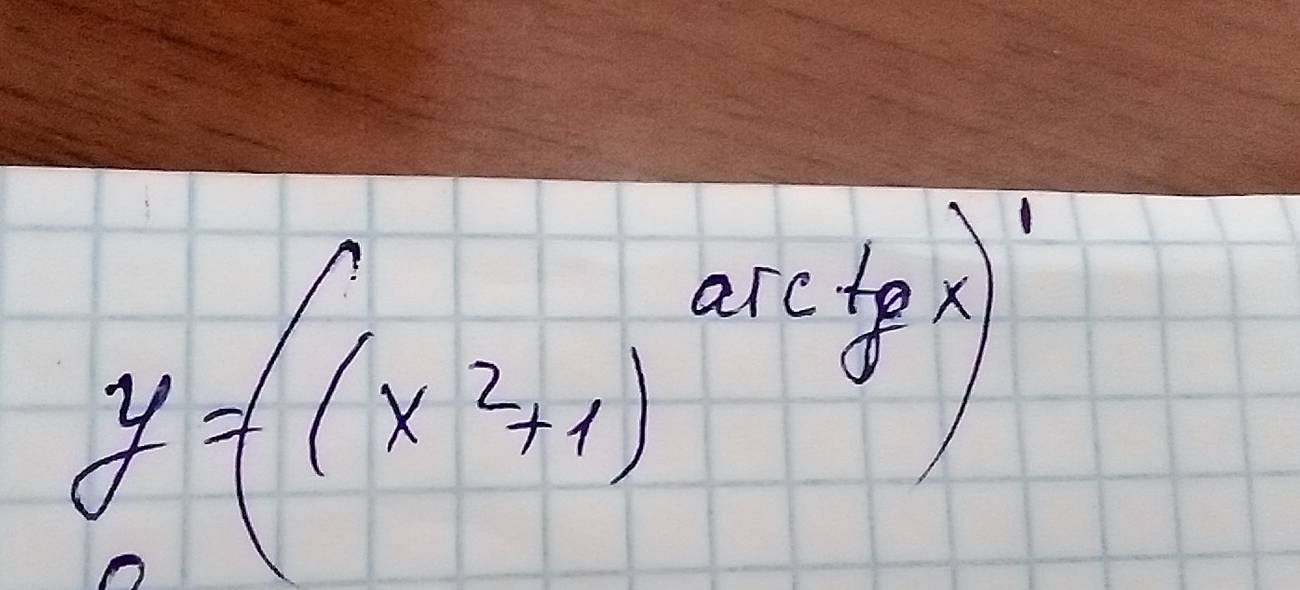 y = ((x² + 1)^{arctg x})'